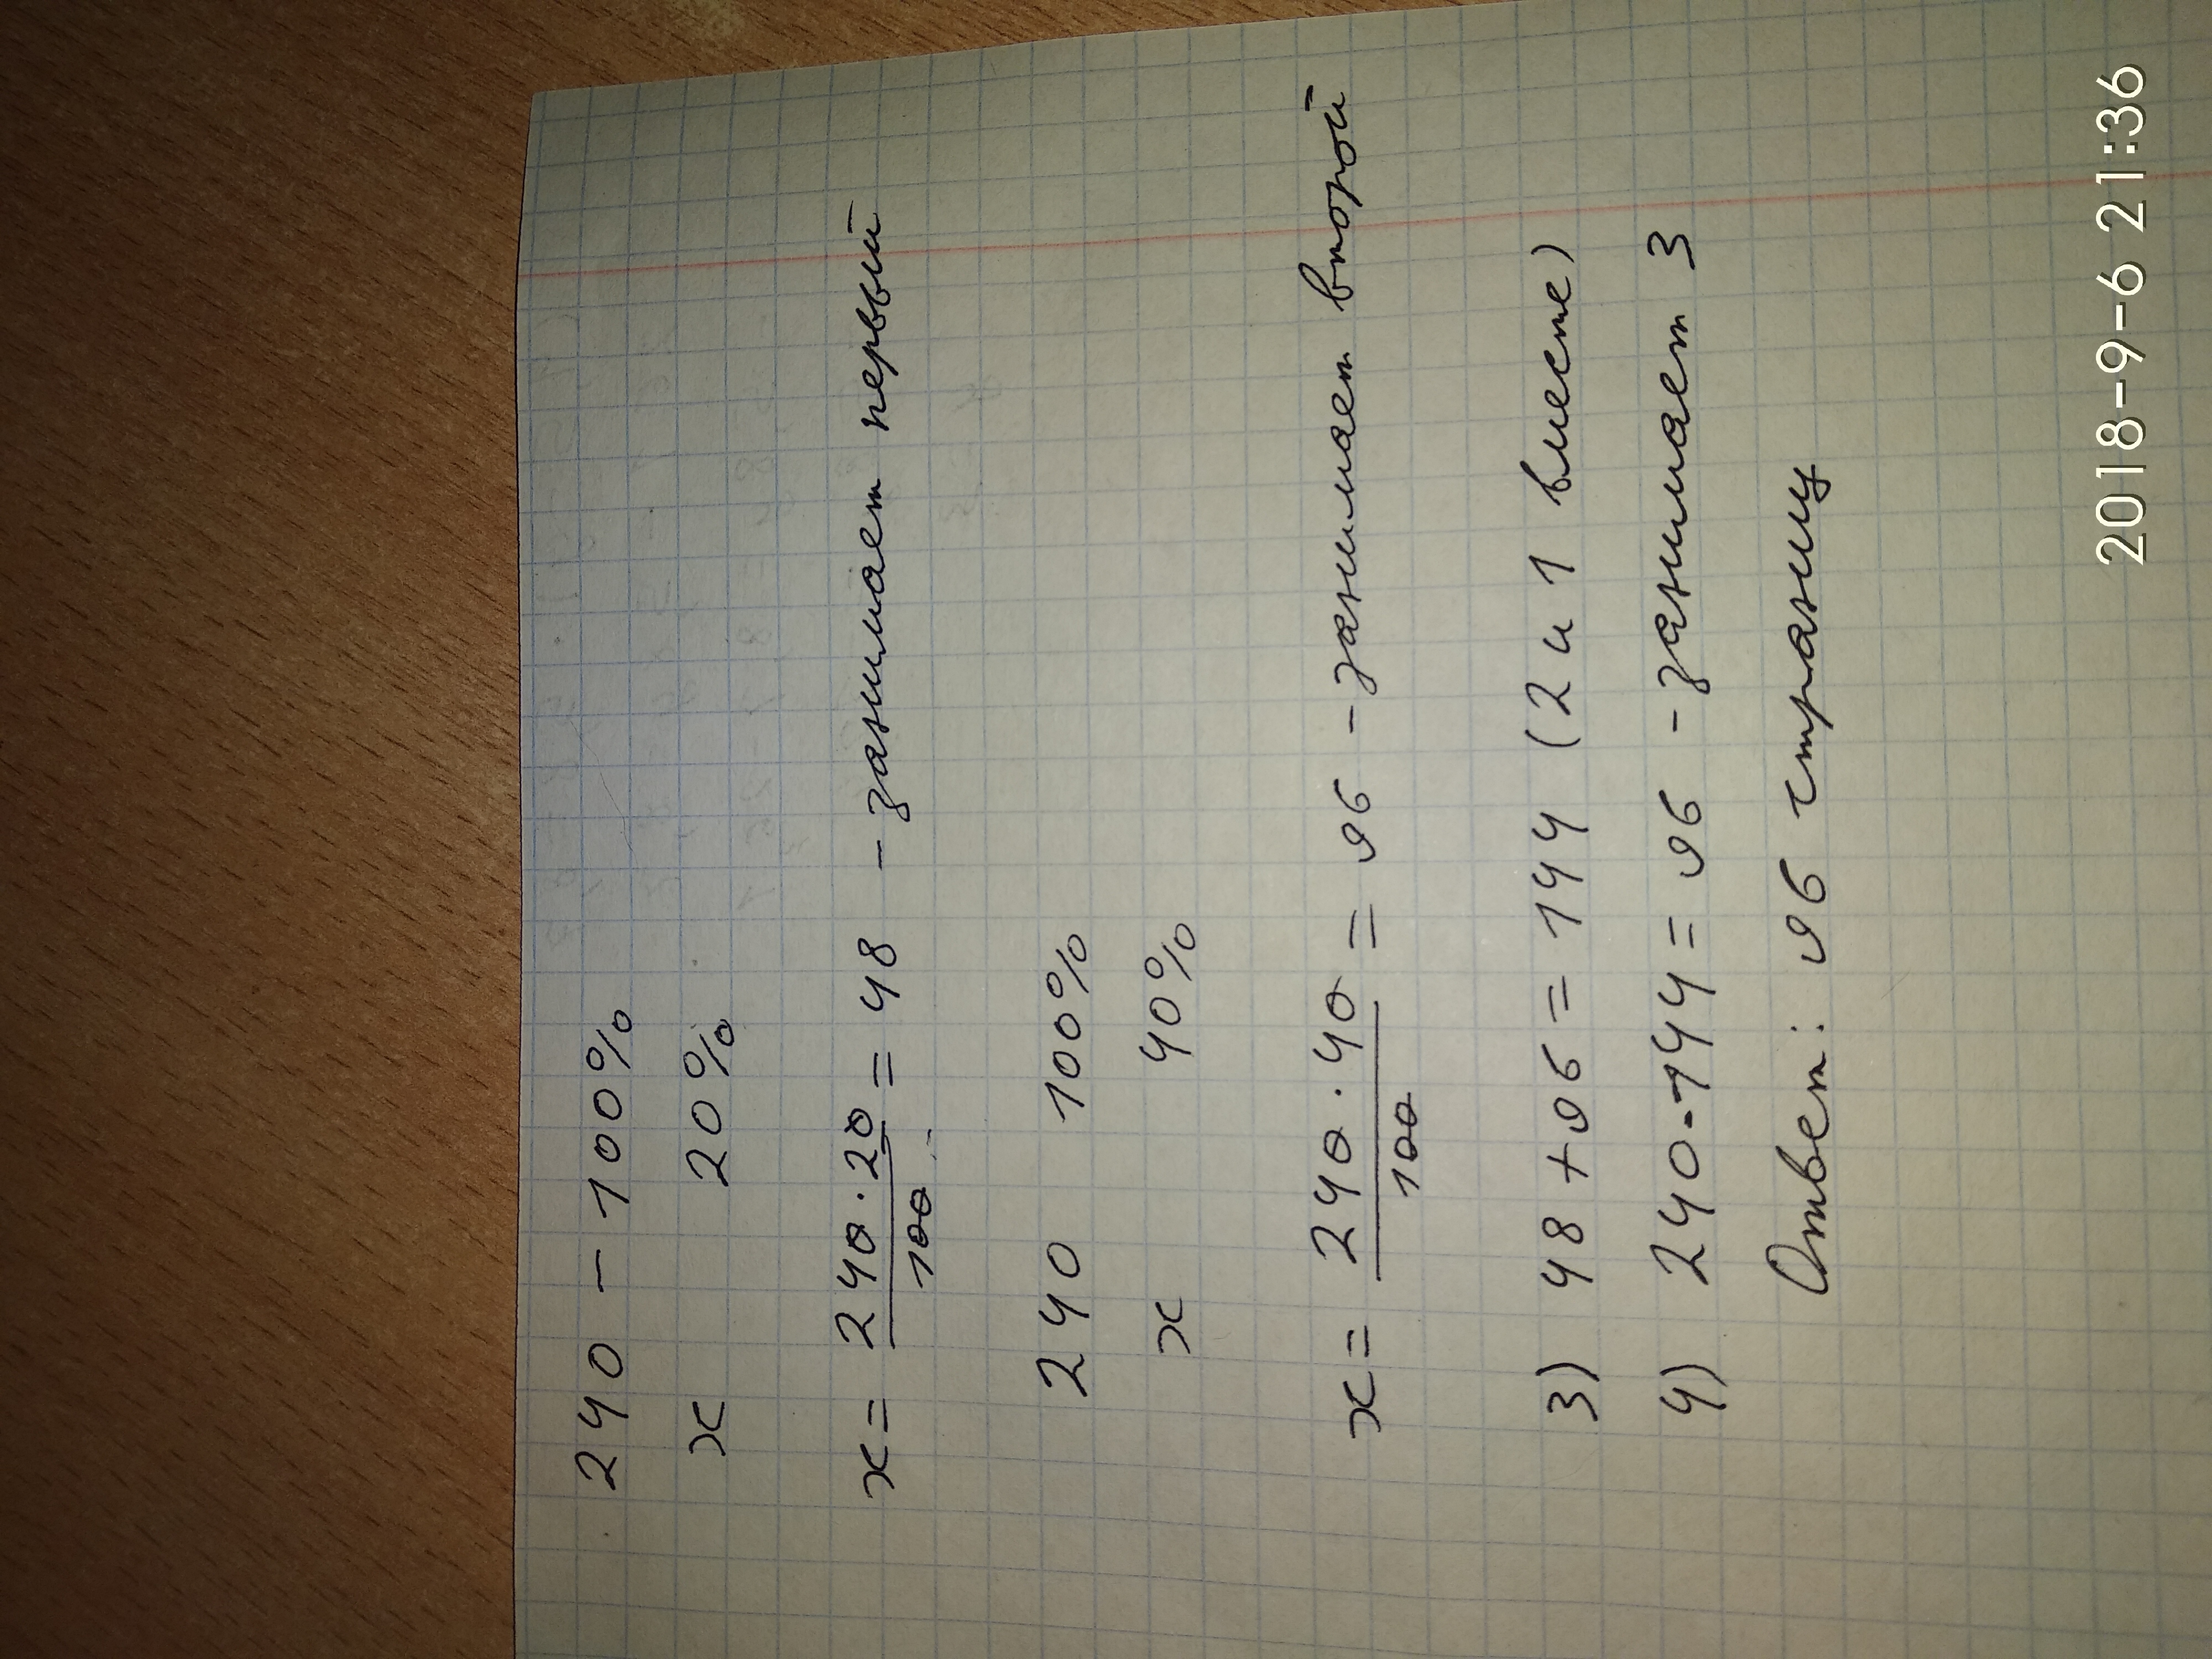 240 - 100%
x 20%
x = 240 · 20 / 100 = 48 - занимает первый
240 100%
x 40%
x = 240 · 40 / 100 = 96 - занимает второй
3) 48 + 96 = 144 (2 и 1 вместе)
4) 240 - 144 = 96 - занимает 3
Ответ: 96 страниц
2018-9-6 21:36